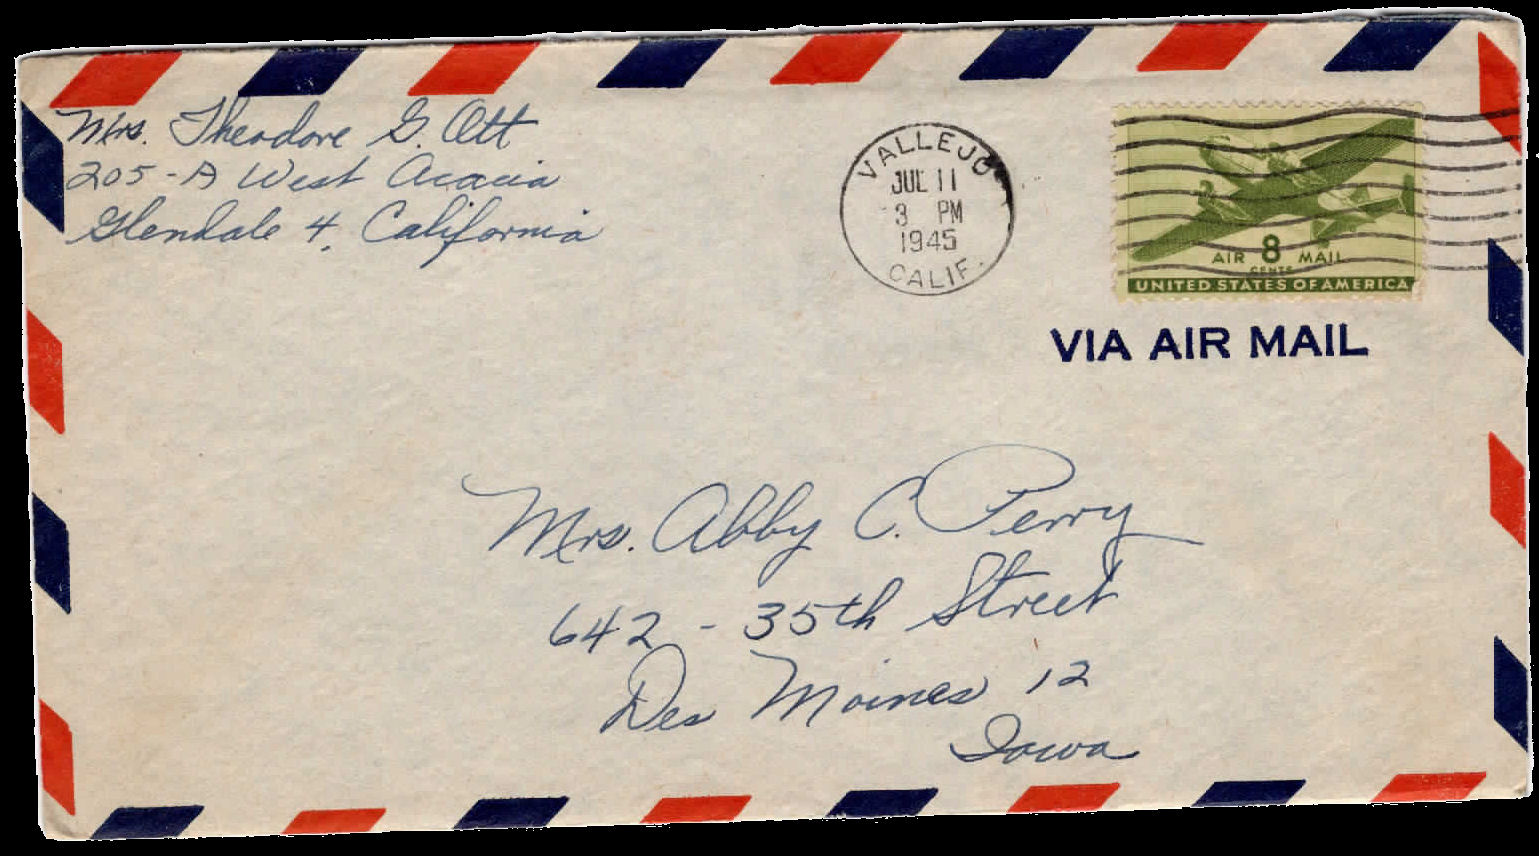 Mrs. Theodore G. Ott
205-A West Acacia
Glendale 4, California
VALLEJO
JUL 11
3 PM
1945
CALIF.
AIR 8 MAIL
CENTS
UNITED STATES OF AMERICA
VIA AIR MAIL
Mrs. Abby C. Perry
642 - 35th Street
Des Moines 12
Iowa